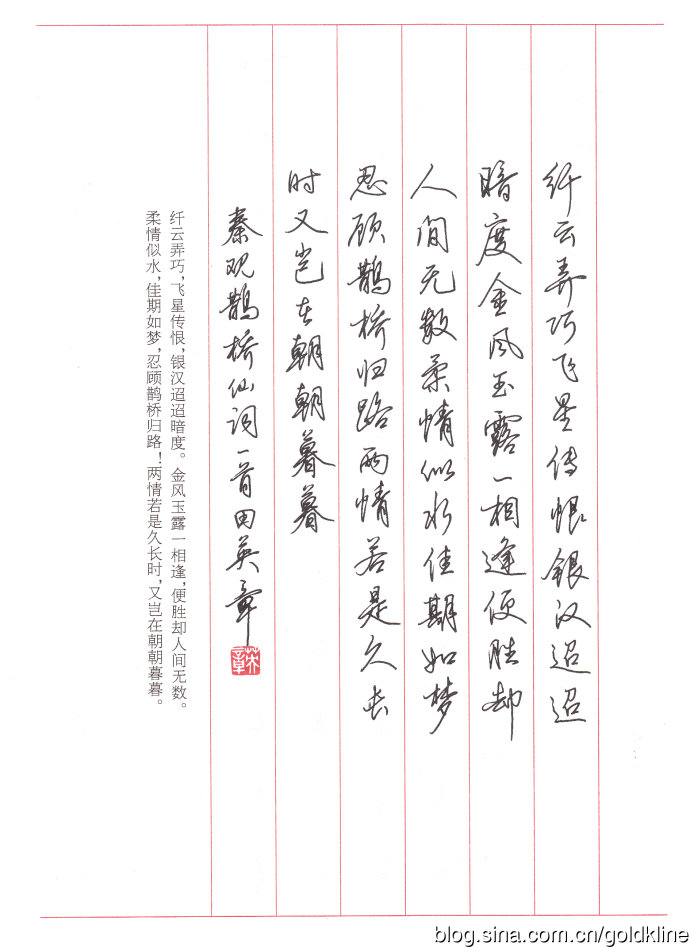 纤云弄巧飞星传恨银汉迢迢
暗度金风玉露一相逢便胜却
人间无数柔情似水佳期如梦
忍顾鹊桥归路两情若是久长
时又岂在朝朝暮暮
秦观鹊桥仙词一首田英章
英章
纤云弄巧,飞星传恨,银汉迢迢暗度。金风玉露一相逢,便胜却人间无数。
柔情似水,佳期如梦,忍顾鹊桥归路!两情若是久长时,又岂在朝朝暮暮。
blog.sina.com.cn/goldkline